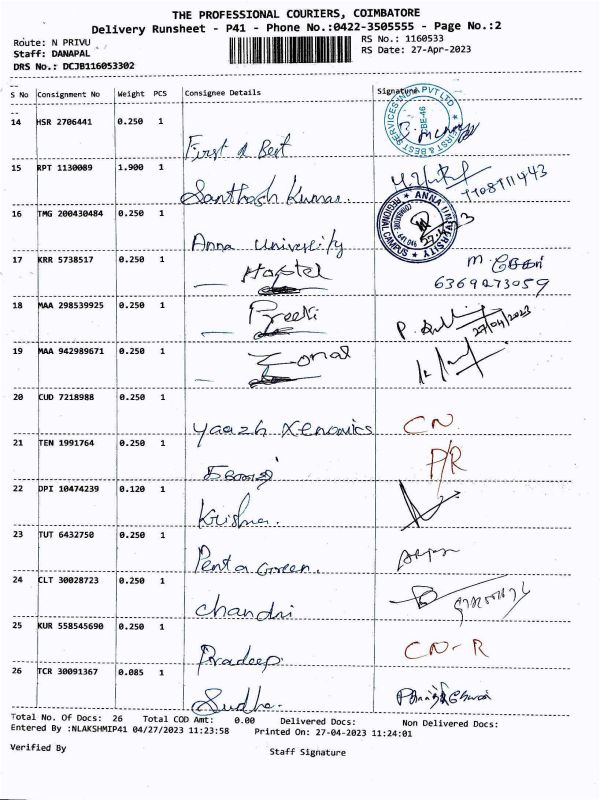 THE PROFESSIONAL COURIERS, COIMBATORE
Delivery Runsheet - P41 - Phone No.:0422-3505555 - Page No.:2
Route: N PRIVU RS No.: 1160533
Staff: DANAPAL RS Date: 27-Apr-2023
DRS No.: DCJB116053302
S No Consignment No Weight PCS Consignee Details Signature
14 HSR 2706441 0.250 1
First & Best
FIRST & BEST SERVICES PVT LTD
CBE-46
15 RPT 1130089 1.900 1
Santhosh Kumar.
16 TMG 200430484 0.250 1
Anna University
ANNA UNIVERSITY
REGIONAL CAMPUS
COIMBATORE 641 046
17 KRR 5738517 0.250 1
Hospital
6369273059
18 MAA 298539925 0.250 1
Preeti
27/04/2023
19 MAA 942989671 0.250 1
Zonal
20 CUD 7218988 0.250 1
Yaazh Xenomics CN
21 TEN 1991764 0.250 1
P/R
22 DPI 10474239 0.120 1
Krishna.
23 TUT 6432750 0.250 1
Penta Green.
24 CLT 30028723 0.250 1
Chandri
25 KUR 558545690 0.250 1
Pradeep. CN-R
26 TCR 30091367 0.085 1
Sudha.
Total No. Of Docs: 26 Total COD Amt: 0.00 Delivered Docs: Non Delivered Docs:
Entered By :NLAKSHMIP41 04/27/2023 11:23:58 Printed On: 27-04-2023 11:24:01
Verified By Staff Signature